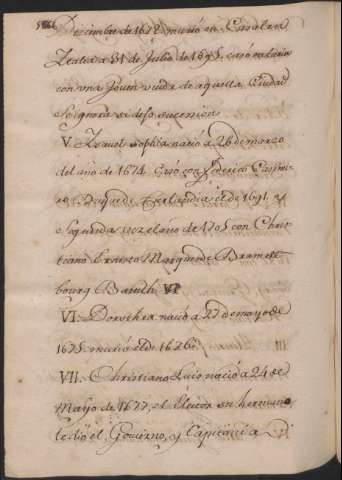 Dizimbre de 1672 murió en
a 31 de Julio de 1695. casó
con una Joven viuda de aquella Ciudad
Se ignora si dejo sucesion
V. Isavel Sophia nació a 26 de marzo
del año de 1674. Casó con Federico Casimi-
ro Duque de Curlandia el de 1691. y
Segunda vez el año de 1705 con Chris-
tiano Ernesto Marques de Bramde-
bourg Bareith VI
VI. Dorothea nació a 27 de mayo de
1675 murió el de 1676.
VII. Christiano Luis nació a 24 de
Mayo de 1677. el Elector su hermano
le dió el Govierno, y Capitania